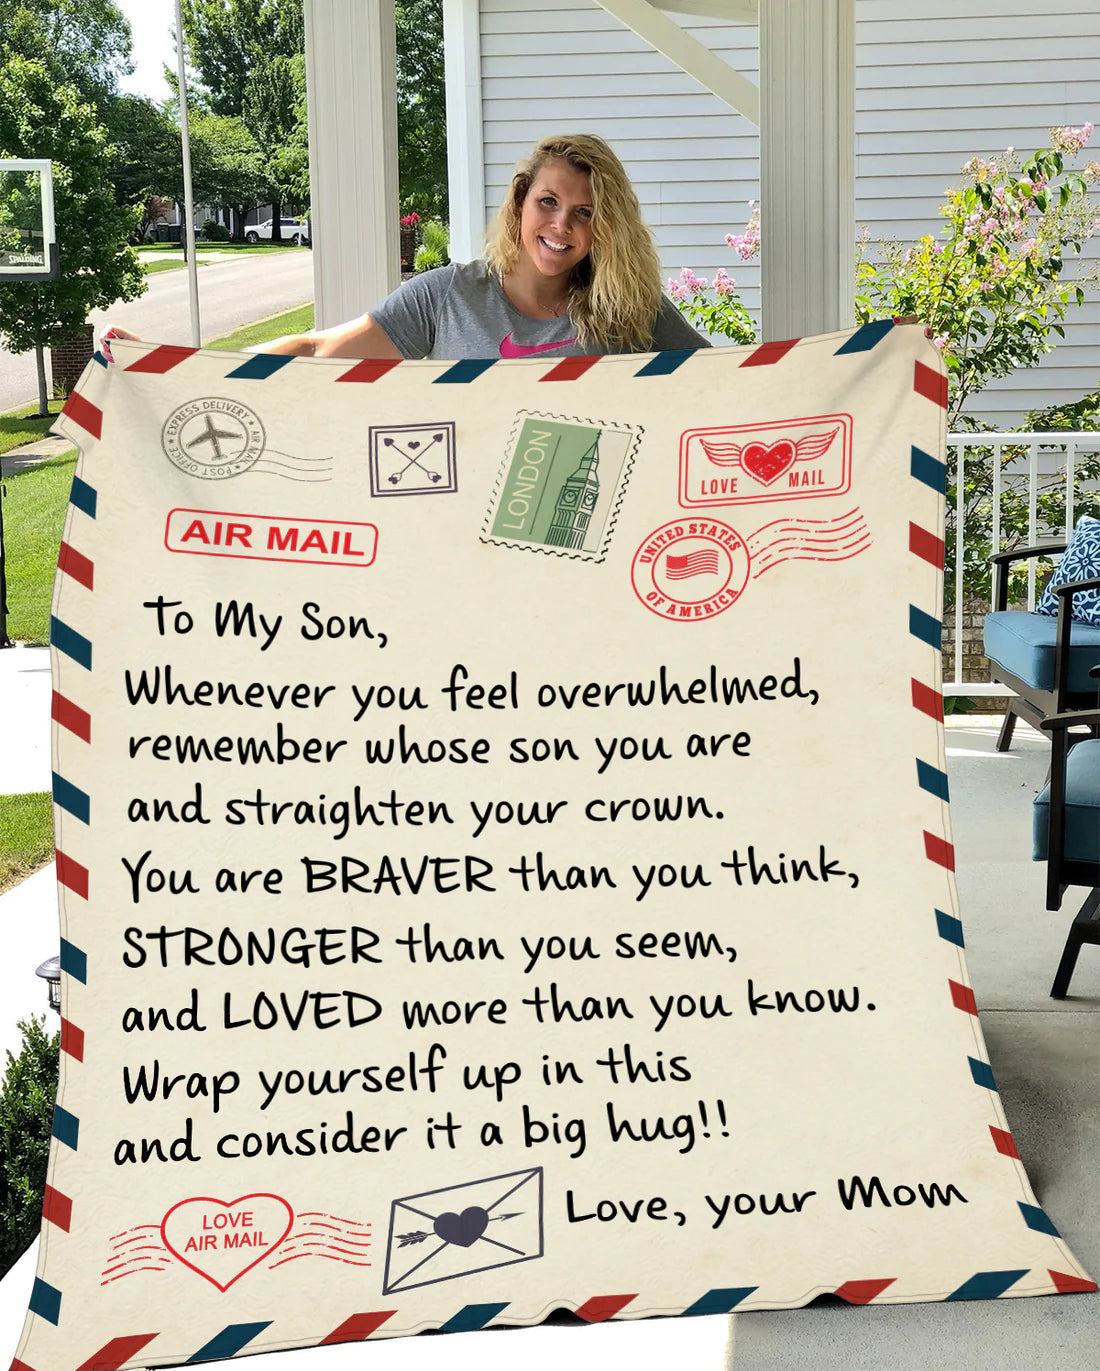 SPALDING
EXPRESS DELIVERY ★ AIR MAIL ★ POST OFFICE ★
LONDON
LOVE MAIL
AIR MAIL
UNITED STATES
OF AMERICA
To My Son,
Whenever you feel overwhelmed,
remember whose son you are
and straighten your crown.
You are BRAVER than you think,
STRONGER than you seem,
and LOVED more than you know.
Wrap yourself up in this
and consider it a big hug!!
Love, your Mom
LOVE
AIR MAIL